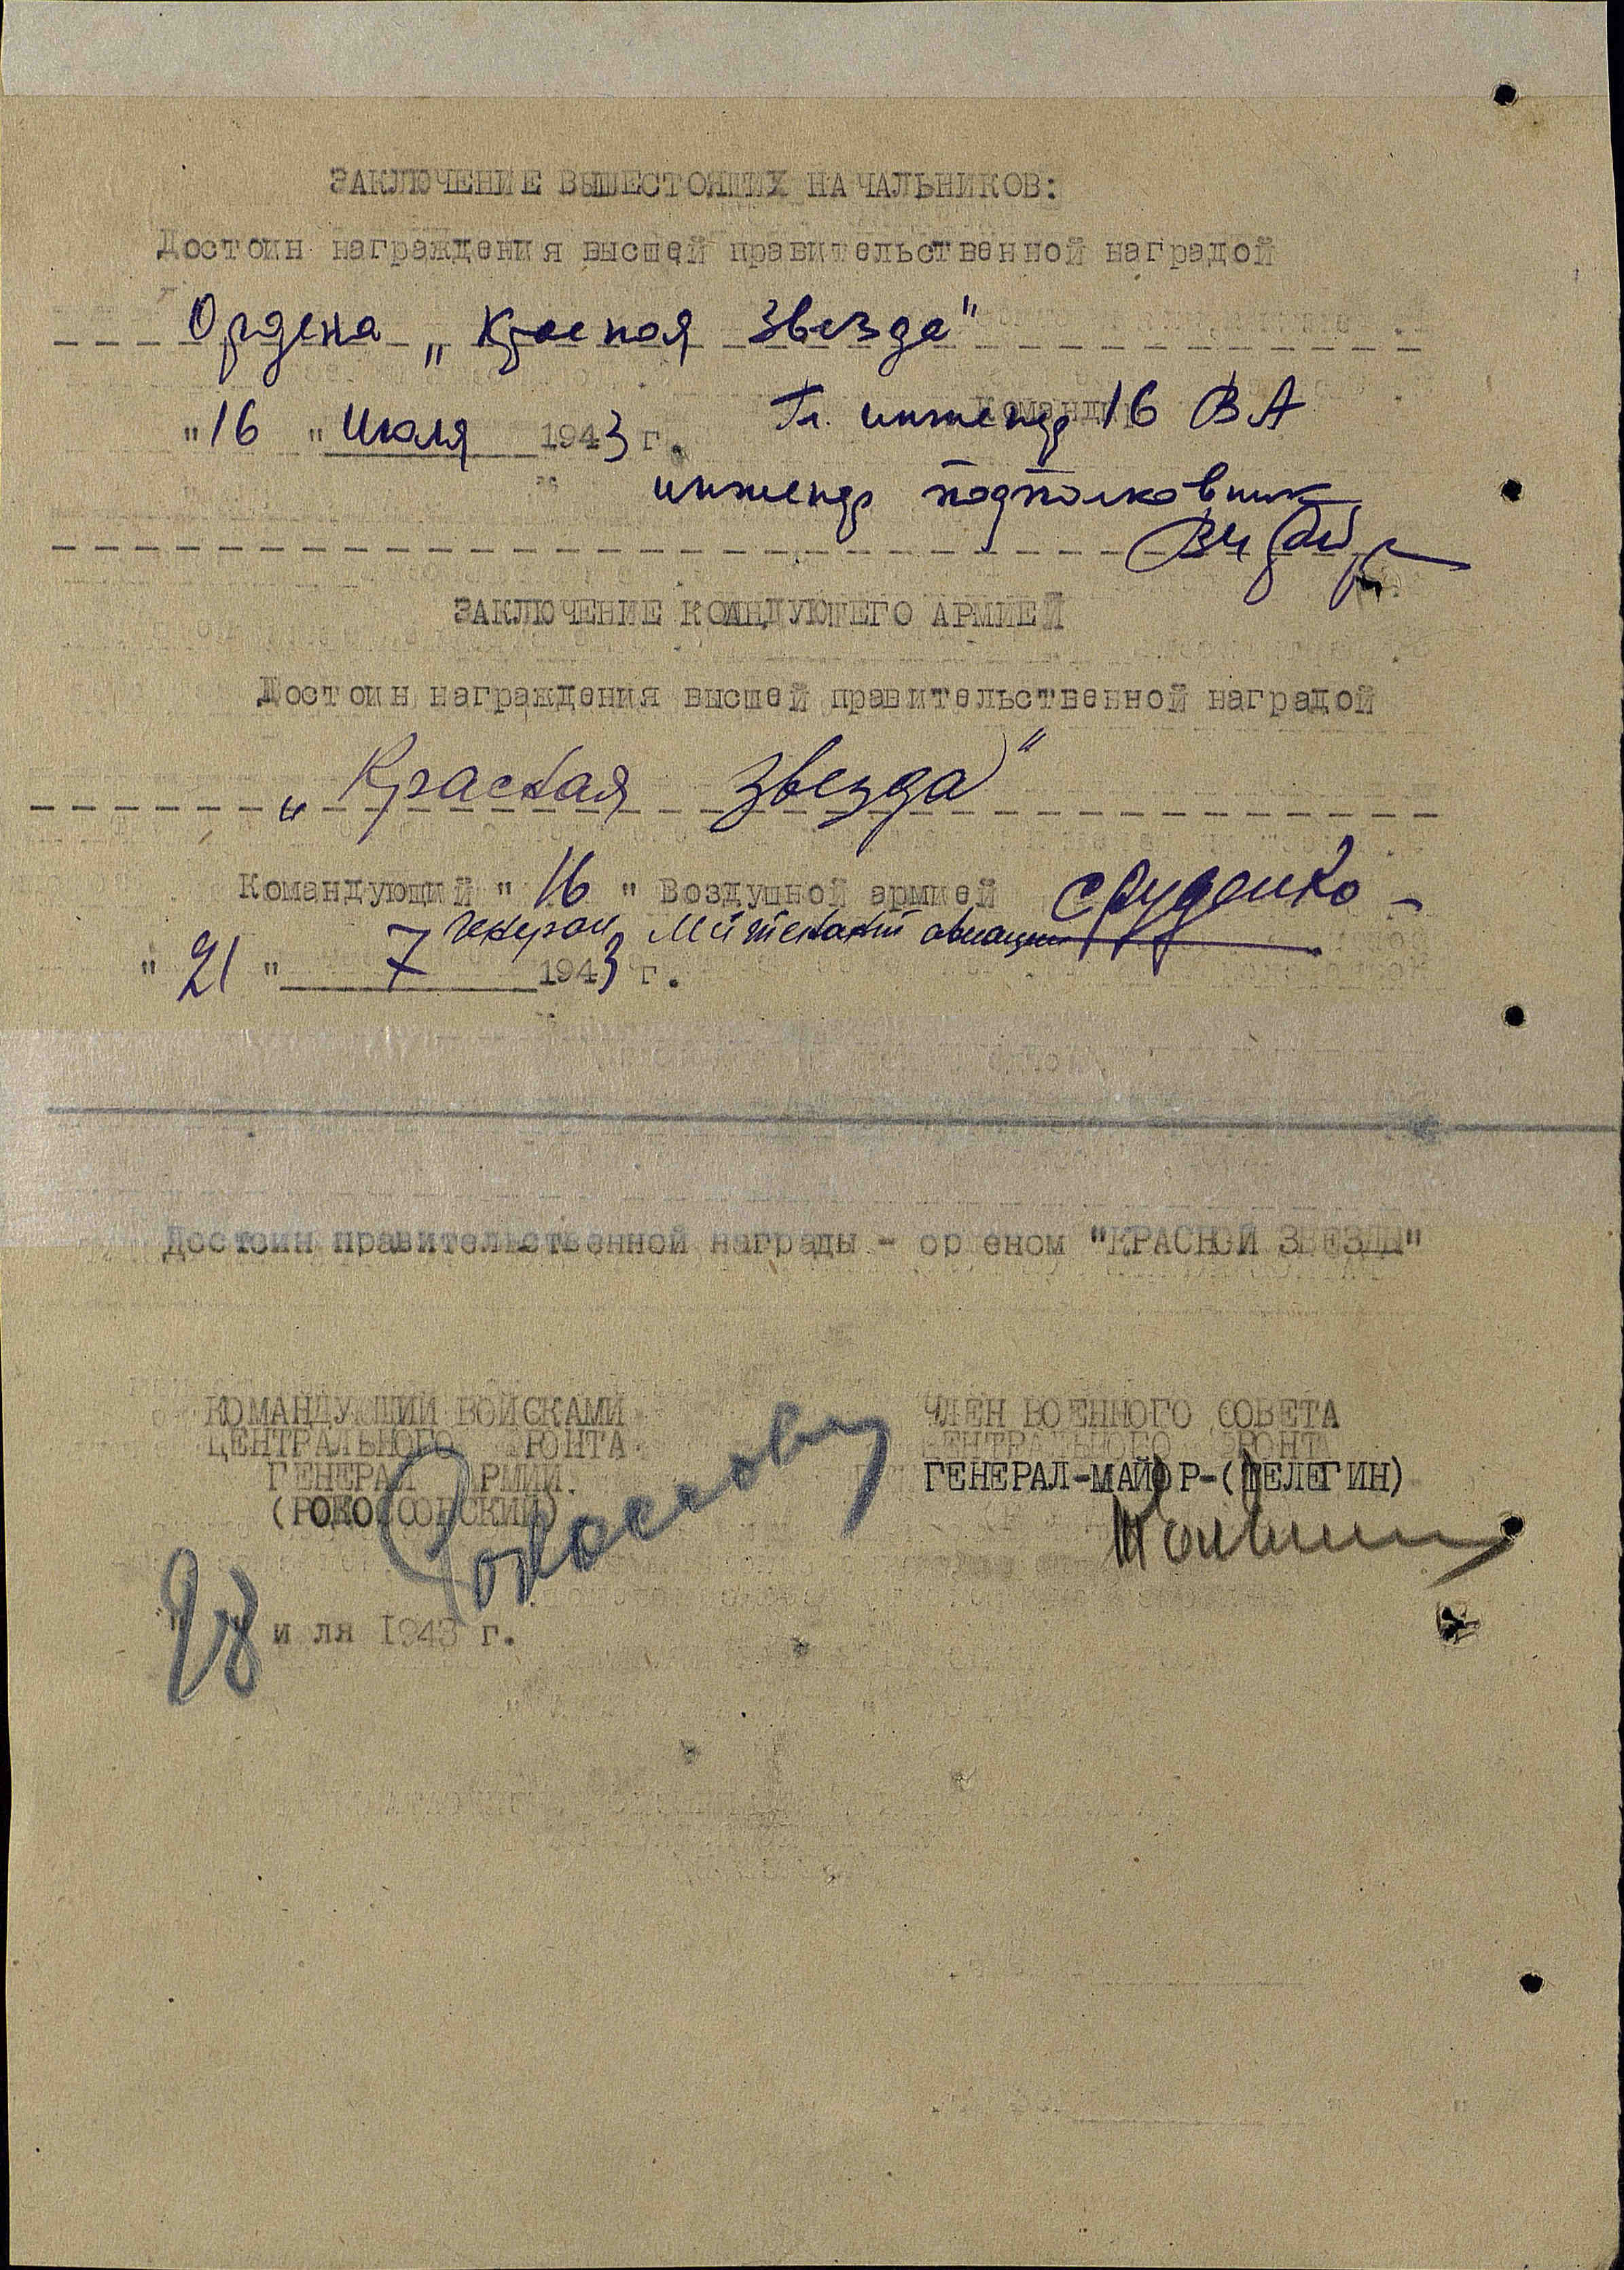 ЗАКЛЮЧЕНИЕ ВЫШЕСТОЯЩИХ НАЧАЛЬНИКОВ:
Достоин награждения высшей правительственной наградой
Ордена „Красная Звезда"
"16" Июля 1943 г. Гл. инженер 16 ВА
инженер подполковник
ЗАКЛЮЧЕНИЕ КОАНДУЮЩЕГО АРМИЕЙ
Достоин награждения высшей правительственной наградой
„Красная Звезда"
Командующий "16" Воздушной армией С Руденко
генерал лейтенант авиации
"21" 7 1943 г.
Достоин правительственной награды - ор еном "КРАСНОЙ ЗВЕЗДЫ"
КОМАНДУЮЩИЙ ВОЙСКАМИ ЧЛЕН ВОЕННОГО СОВЕТА
ЦЕНТРАЛЬНОГО ФРОНТА ЦЕНТРАЛЬНОГО ФРОНТА
ГЕНЕРАЛ АРМИИ. ГЕНЕРАЛ-МАЙОР-(ТЕЛЕГИН)
(РОКОССОВСКИЙ)
"28" и ля 1943 г.